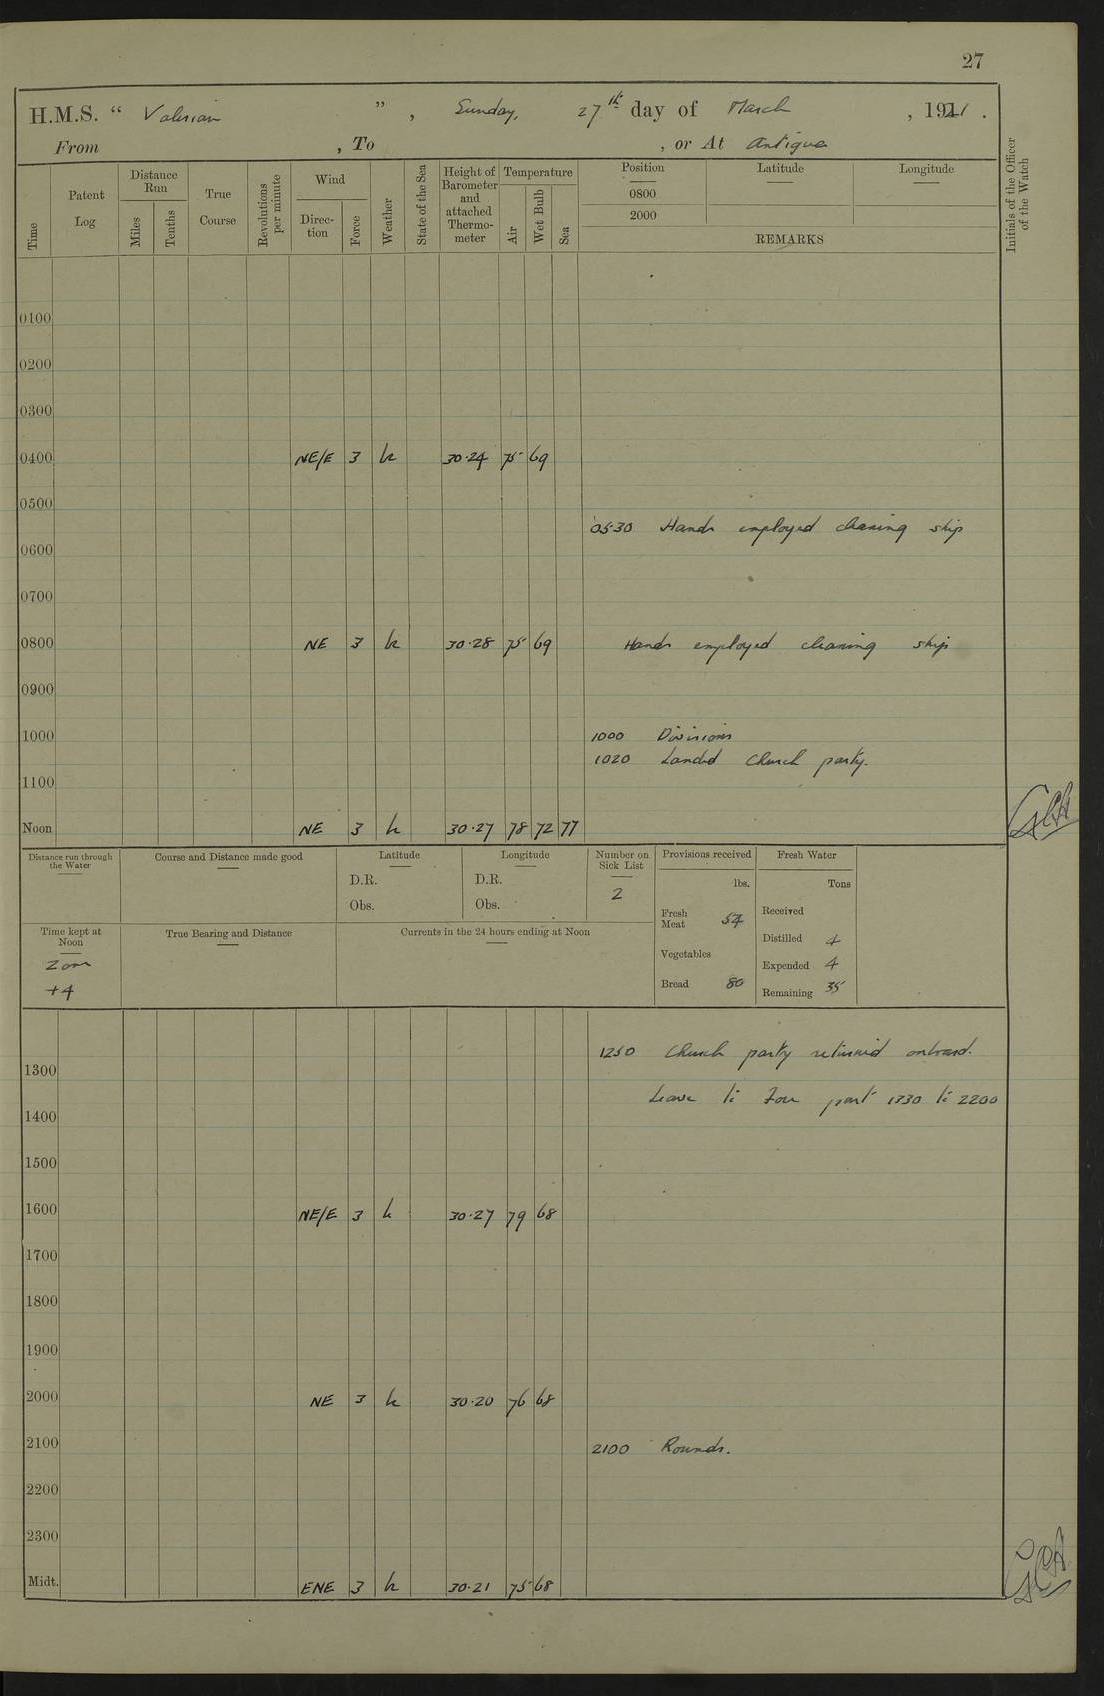 27
H.M.S. “ Valerian ” , Sunday, 27th day of March , 1921 .
From , To , or At Antigua
Time
Patent Log
Distance Run
Miles
Tenths
True Course
Revolutions per minute
Wind
Direc-tion
Force
Weather
State of the Sea
Height of Barometer and attached Thermo-meter
Temperature
Air
Wet Bulb
Sea
Position
0800
2000
Latitude
Longitude
REMARKS
Initials of the Officer of the Watch
0100
0200
0300
0400 NE/E 3 b 30.24 75 69
0500
0530 Hands employed cleaning ship
0600
0700
0800 NE 3 b 30.28 75 69 Hands employed cleaning ship
0900
1000 1000 Divisions
1020 Landed Church party.
1100
Noon NE 3 b 30.27 78 72 77
Distance run through the Water
Course and Distance made good
Latitude
D.R.
Obs.
Longitude
D.R.
Obs.
Number on Sick List
2
Provisions received
lbs.
Fresh Meat 54
Vegetables
Bread 80
Fresh Water
Tons
Received
Distilled 4
Expended 4
Remaining 35
Time kept at Noon
Zone
+4
True Bearing and Distance
Currents in the 24 hours ending at Noon
1250 Church party returned onboard.
1300
Leave to four part 1330 to 2200
1400
1500
1600 NE/E 3 b 30.27 79 68
1700
1800
1900
2000 NE 3 b 30.20 76 68
2100 2100 Rounds.
2200
2300
Midt. ENE 3 b 30.21 75 68